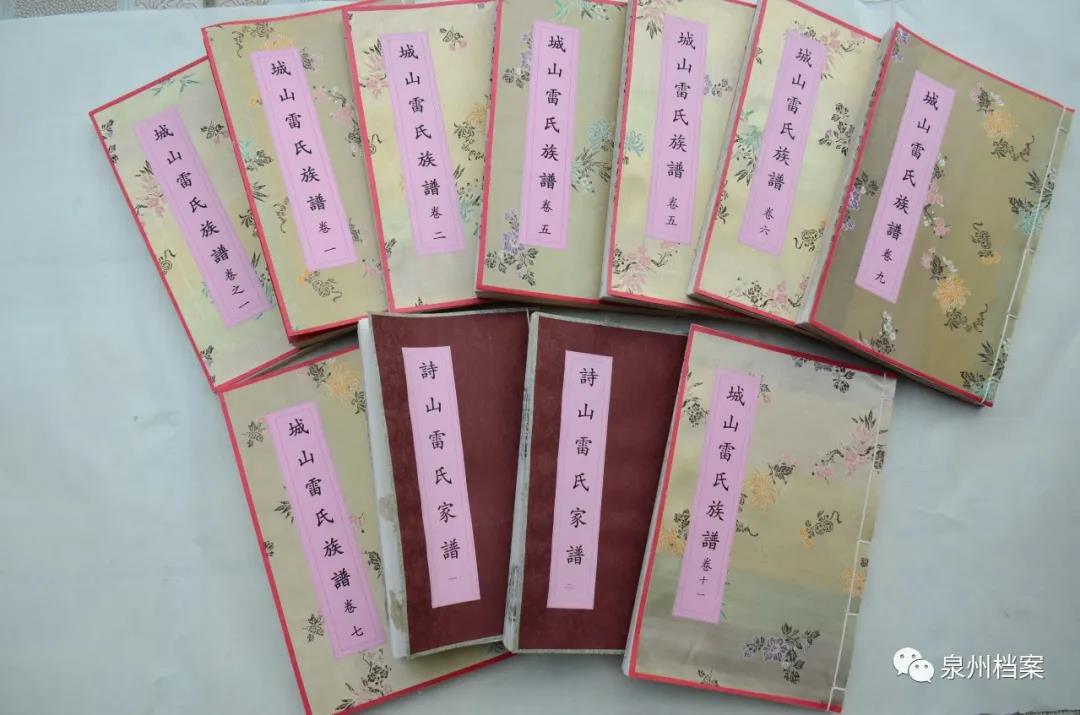 城山雷氏族譜 卷之一
城山雷氏族譜 卷一
城山雷氏族譜 卷二
城山雷氏族譜 卷五
城山雷氏族譜 卷五
城山雷氏族譜 卷六
城山雷氏族譜 卷九
城山雷氏族譜 卷七
詩山雷氏家譜 一
詩山雷氏家譜 二
城山雷氏族譜 卷十一
泉州档案